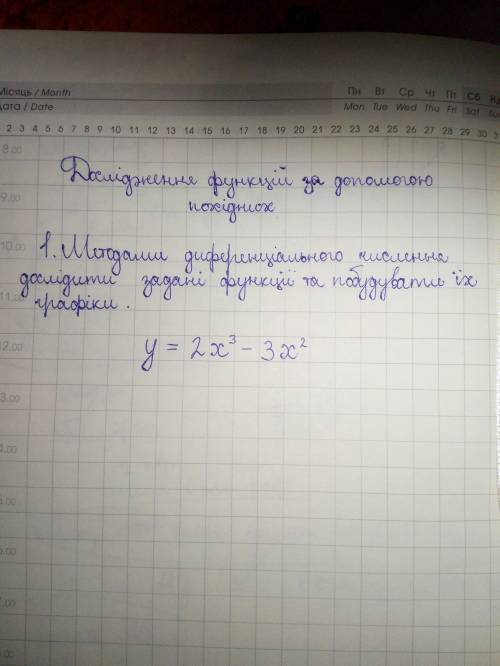 Місяць / Month Пн Вт Ср Чт Пт Сб
Дата / Date Mon Tue Wed Thu Fri Sat Sun
2 3 4 5 6 7 8 9 10 11 12 13 14 15 16 17 18 19 20 21 22 23 24 25 26 27 28 29 30
8.00
Дослідження функцій за допомогою
9.00
похідних
10.00
1. Методами диференціального числення
дослідити задані функції та побудувати їх
11.00
графіки.
12.00
y = 2x³ - 3x²